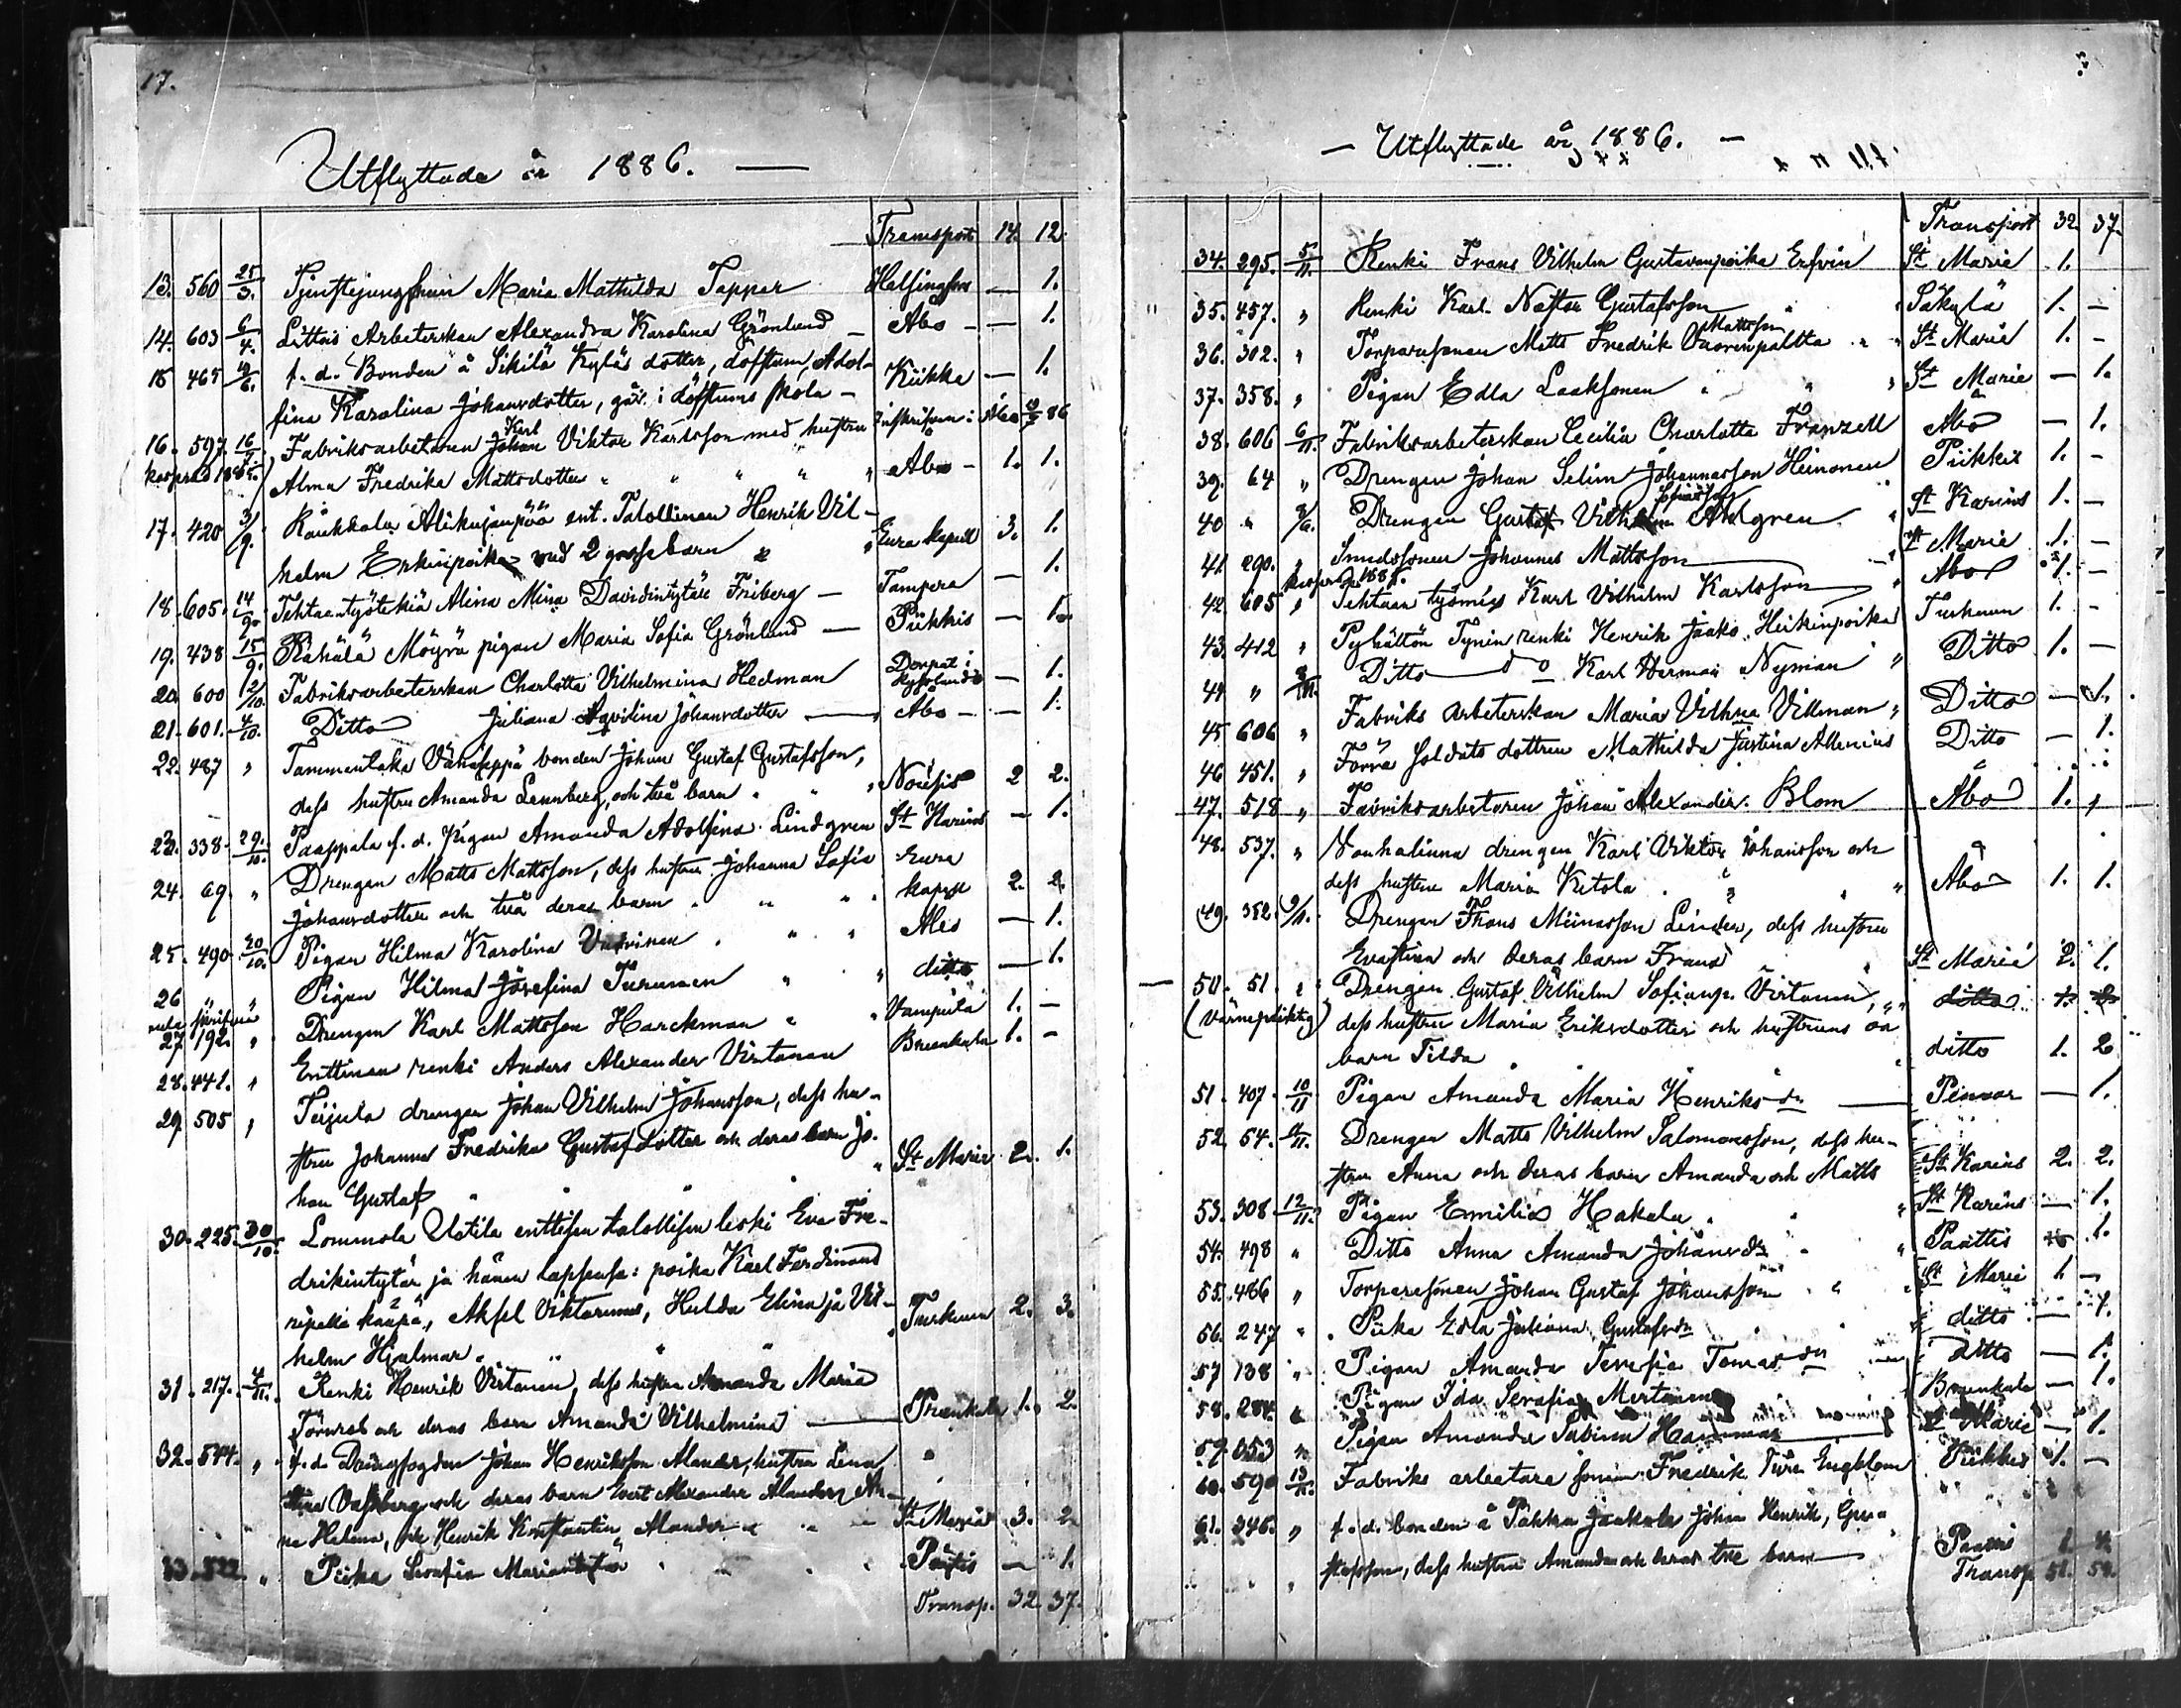 17.
Utflyttade år 1886. —
Transport 14. 12.
13. 560 25/3. Tjenstejungfrun Maria Mathilda Tapper Helsingfors — 1.
14. 603 6/4. Littois Arbeterskan Alexandra Karolina Grönlund — Åbo — — 1.
15 465 /6. f. d. Bonden å Sikilä Kyläs dotter, döfstum, Adol-
fina Karolina Johansdotter, går i döfstums skola — Kiikka — 1.
16. 597. 16/ Fabriksarbetaren Johan Karl Viktor Karlsson med hustru Inskrifven i Åbo 86
Alma Fredrika Mattsdotter " " " " Åbo — 1. 1.
17. 420 3/9. Raukkala Alikujanpää ent. Talollinen Henrik Vil-
helm Erkinpoika med 2 barn " " Eura kapell 3. 1.
18. 605. 14/9. Tehtaantyötekiä Alina Mina Davidintytär Friberg — Tampere — 1.
19. 438 15/9. Rähälä Möyrä pigan Maria Sofia Grönlund — Piikkis — 1.
20. 600 12/10. Fabriksarbeterskan Charlotta Vilhelmina Hedman Dorpat i — 1.
21. 601. 4/10. Ditto Juliana Aqvilina Johansdotter — Åbo — — 1.
22. 487 " Tammentaka Vähäuppä bonden Johan Gustaf Gustafsson,
dess hustru Amanda Lennberg, och två barn " " " Nousis 2 2.
23. 338. 29./10. Paappala f. d. Pigan Amanda Adolfina Lindgren St Karins — 1.
24. 69. " Drengen Matts Mattsson, dess hustru Johanna Sofia Eura
Johansdotter och två deras barn " " " kapell 2. 2.
25. 490. 20/10. Pigan Hilma Karolina " " Ales — 1.
26 Pigan Hilma Josefina Turunen " " ditto — 1.
27. 192. " Drengen Karl Mattsson Harckman " " Vampula 1. —
28. 441. " Erittinen renki Anders Alexander Virtanen Brenkala 1. —
29 505 " Teijula drengen Johan Vilhelm Johansson, dess hu-
stru Johanna Fredrika Gustafsdotter och deras barn Jo-
han Gustaf " " " " St Marie 2. 1.
30. 225. 30/10. Lommola Uotila enttisen talollisen leski Eva Fre-
drikintytär ja hänen lapsensa: poika Karl Ferdinand
Aksel Viktorinus, Hulda Elina ja Vil-
helm Hjalmar. " " Turkuun 2. 3.
31. 217. 4/11. Renki Henrik Virtanen, dess hustru Amanda Maria
Törnrot och deras barn Amanda Vilhelmina — Prenkala 1. 2.
32. 544. " f. d. Drängfogden Johan Henriksson Alander, hustru Lena
och deras barn Evert Alexander Alander, An-
na Helena, Henrik Konstantin Alander " " St Marie 3. 2.
33. 522 " Piika Serafia Mariantytär " " Pöytis — 1.
Transp. 32. 37.
— Utflyttade år 1886. —
Transport 32. 37.
34. 295. 5/11. Renki Frans Vilhelm Gustavinpoika Erfvin St Marie 1.
35. 457. " Renki Karl Naftor Gustafsson " " Säkylä 1. —
36. 302. " Torparesonen Matts Fredrik Mattsson Vuorenpaltta " " St Marie 1. —
37. 358. " Pigan Edla Laaksonen " " " St Marie — 1.
38. 606 6/11. Fabriksarbeterskan Cecilia Charlotta Franzell Åbo — 1.
39. 64 " Drengen Johan Selim Johannasson Heinonen Piikkis 1. —
40 " Drengen Gustaf Vilhelm Ahlgren " St Karins 1. —
41. 290. " Smedssonen Johannes Mattsson — St Marie 1. —
42. 605 " Tehtaan työmies Karl Vilhelm Karlsson — Åbo 1. —
43. 412 " Pyhättön Tynin renki Henrik Jaako Heikinpoika Turkuun 1. —
44. " /11. Ditto do Karl Herman Nyman " Ditto 1. —
45 606 " Fabriks arbeterskan Maria Vilhna Villman " Ditto — 1.
46 451. " Förra soldats dottren Mathilda Justina Allenius Ditto — 1.
47. 518 " Fabriksarbetaren Johan Alexander Blom Åbo 1. "
48. 537. " Vanhalinna drengen Karl Viktor Johansson och
dess hustru Maria Ketola " " Åbo 1. 1.
49. 352. 9/11. Drengen Frans Miinasson Linder, dess hustru
Evastina och deras barn Frans St Marie 2. 1.
50. 51. " Drengen Gustaf Vilhelm Sofianp. Virtanen, " ditto
(Värnepliktig) dess hustru Maria Eriksdotter och hustruns oä
barn Tilda " " ditto 1. 2
51. 407. 10/11 Pigan Amanda Maria Henriksdr — Pemar — 1.
52. 54. /11. Drengen Matts Vilhelm Salomonsson, dess hu-
stru Anna och deras barn Amanda och Matts St Karins 2. 2.
53. 308 12/11. Pigan Emilia Hakala " " St Karins — 1.
54. 498 " Ditto Anna Amanda Johansdr " " Paattis 1.
55. 466 " Torparesonen Johan Gustaf Johansson " " St Marie 1. —
56. 247 " Piika Edla Juliana Gustafsdr " ditto — 1.
57 138 " Pigan Amanda Serafia Tomasdr " ditto — 1.
58. 284. " Pigan Ida Serafia Mertanen Brenkala — 1.
59. 353 " Pigan Amanda Sabina St Marie — 1.
60. 590 13/11. Fabriks arbetare sonen Fredrik Ture Engblom Piikkis 1. —
61. 345. " f. d. bonden å Pakka Jaakola Johan Henrik, Gu-
stafsson, dess hustru Amanda och deras tre barn — 1. 4.
Transp 51. 59.